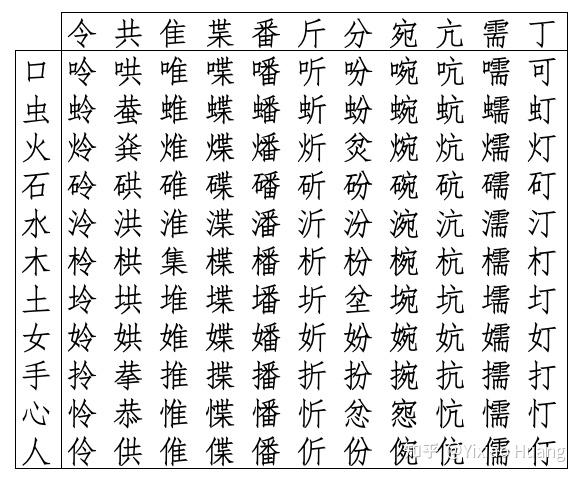 令 共 隹 枼 番 斤 分 宛 亢 需 丁
口 呤 哄 唯 喋 噃 听 吩 啘 吭 嚅 可
虫 蛉 蛬 蜼 蝶 蟠 蚚 蚡 蜿 蚢 蠕 虰
火 炩 烡 焳 煠 燔 炘 炃 焥 炕 燸 灯
石 砱 硔 碓 碟 磻 斫 砏 碗 砊 礝 矴
水 泠 洪 淮 渫 潘 沂 汾 涴 沆 濡 汀
木 柃 栱 集 楪 橎 析 枌 椀 杭 檽 朾
土 坽 垬 堆 堞 墦 圻 坌 埦 坑 壖 圢
女 姈 娂 婎 媟 嬏 妡 妢 婉 妔 嬬 奵
手 拎 拲 推 揲 播 折 扮 捥 抗 擩 打
心 怜 恭 惟 惵 憣 忻 忿 惌 忼 懦 忊
人 伶 供 倠 偞 僠 伒 份 倇 伉 儒 仃
知乎 @Yixiao Huang